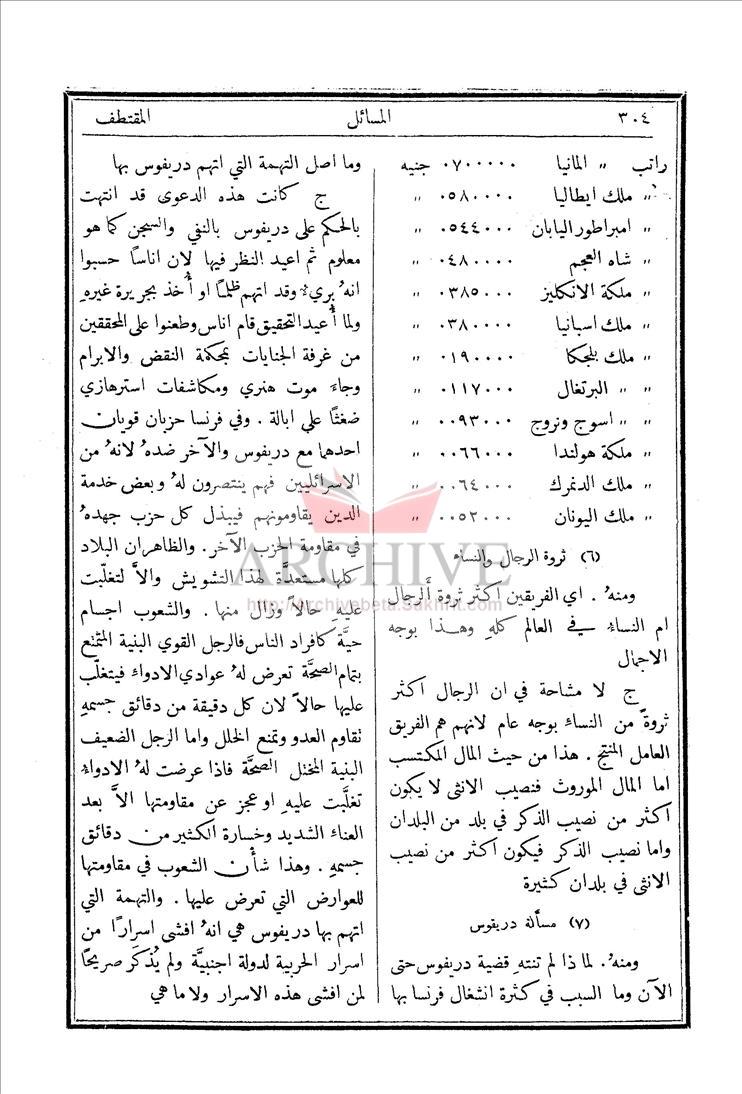 ٣٠٤ المسائل المقتطف
راتب " المانيا ٠٧٠٠٠٠٠ جنيه
" ملك ايطاليا ٠٥٨٠٠٠٠ "
" امبراطور اليابان ٠٥٤٤٠٠٠ "
" شاه العجم ٠٤٨٠٠٠٠ "
" ملكة الانكليز ٠٣٨٥٠٠٠ "
" ملك اسبانيا ٠٣٨٠٠٠٠ "
" ملك بلجكا ٠١٩٠٠٠٠ "
" " البرتغال ٠١١٧٠٠٠ "
" " اسوج ونروج ٠٠٩٣٠٠٠ "
" ملكة هولندا ٠٠٦٦٠٠٠ "
" ملك الدنمرك ٠٠٦٤٠٠٠ "
" ملك اليونان ٠٠٥٣٠٠٠ "
(٦) ثروة الرجال والنساء
ومنهُ . اي الفريقين اكثر ثروة أَلرجال
ام النساء في العالم كلهِ وهذا بوجه
الاجمال
ج لا مشاحة في ان الرجال اكثر
ثروةً من النساء بوجه عام لانهم هم الفريق
العامل المنتج . هذا من حيث المال المكتسب
اما المال الموروث فنصيب الانثى لا يكون
اكثر من نصيب الذكر في بلد من البلدان
واما نصيب الذكر فيكون اكثر من نصيب
الانثى في بلدان كثيرة
(٧) مسألة دريفوس
ومنهُ . لماذا لم تنتهِ قضية دريفوس حتى
الآن وما السبب في كثرة انشغال فرنسا بها
وما اصل التهمة التي اتهم دريفوس بها
ج كانت هذه الدعوى قد انتهت
بالحكم على دريفوس بالنفي والسجن كما هو
معلوم ثم اعيد النظر فيها لان اناسًا حسبوا
انهُ بريءٌ وقد اتهم ظلمًا او أُخذ بجريرة غيرهِ
ولما أُعيد التحقيق قام اناس وطعنوا على المحققين
من غرفة الجنايات بمحكمة النقض والابرام
وجاء موت هنري ومكاشفات استرهازي
ضغثًا على ابالة . وفي فرنسا حزبان قويان
احدهما مع دريفوس والآخر ضدهُ لانهُ من
الاسرائليين فهم ينتصرون لهُ وبعض خدمة
الدين يقاومونهم فيبذل كل حزب جهدهُ
في مقاومة الحزب الآخر . والظاهر ان البلاد
كلها مستعدَّة لهذا التشويش والاَّ لتغلَّبت
عليهِ حالاً وزال منها . والشعوب اجسام
حيَّة كافراد الناس فالرجل القوي البنية المتمتع
بتمام الصحَّة تعرض لهُ عوادي الادواء فيتغلَّب
عليها حالاً لان كل دقيقة من دقائق جسمهِ
تقاوم العدو وتمنع الخلل واما الرجل الضعيف
البنية المختل الصحَّة فاذا عرضت لهُ الادواء
تغلَّبت عليهِ او عجز عن مقاومتها الاَّ بعد
العناء الشديد وخسارة الكثير من دقائق
جسمهِ . وهذا شأن الشعوب في مقاومتها
للعوارض التي تعرض عليها . والتهمة التي
اتهم بها دريفوس هي انهُ افشى اسرارًا من
اسرار الحربية لدولة اجنبيَّة ولم يُذكَر صريحًا
لمن افشى هذه الاسرار ولا ما هي
ARCHIVE
http://Archivebeta.Sakhrit.com